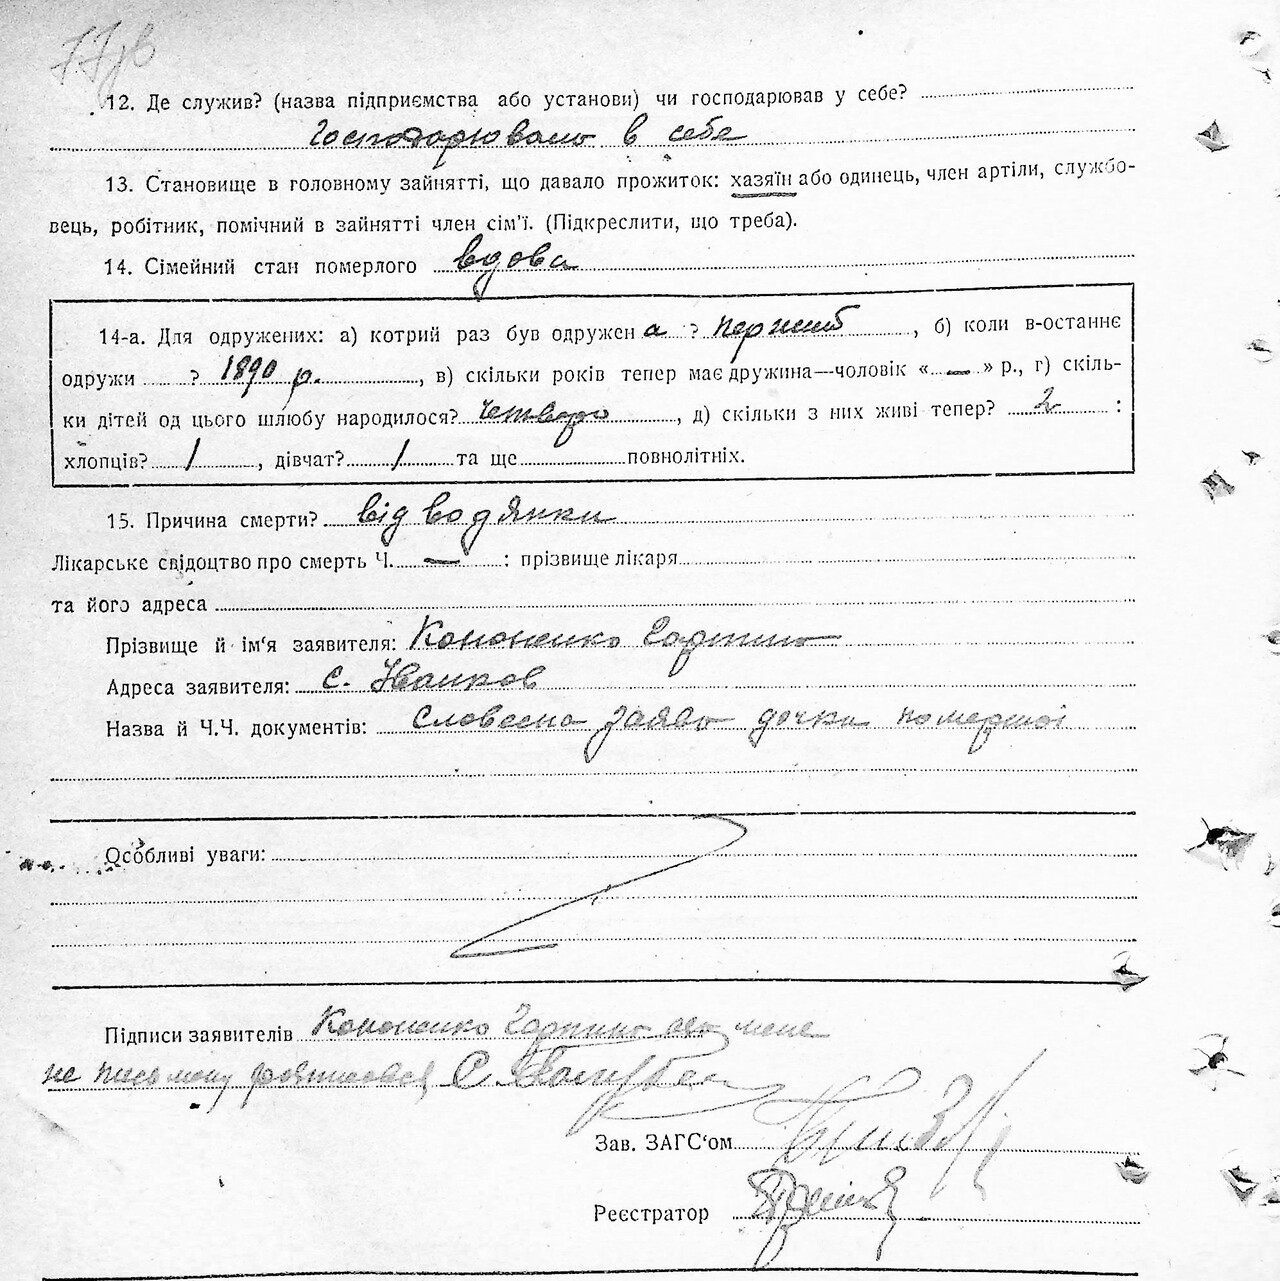 77зв
12. Де служив? (назва підприємства або установи) чи господарював у себе?
Господарювала в себе
13. Становище в головному зайнятті, що давало прожиток: хазяїн або одинець, член артіли, службо-
вець, робітник, помічний в зайнятті член сім'ї. (Підкреслити, що треба).
14. Сімейний стан померлого вдова
14-а. Для одружених: а) котрий раз був одружен а ? перший, б) коли в-останнє
одружи ? 1890 р., в) скільки років тепер має дружина—чоловік «—» р., г) скіль-
ки дітей од цього шлюбу народилося? четверо, д) скільки з них живі тепер? 2 :
хлопців? 1, дівчат? 1 та ще повнолітніх.
15. Причина смерти? від водянки
Лікарське свідоцтво про смерть Ч. — : прізвище лікаря
та його адреса
Прізвище й ім'я заявителя: Кононенко
Адреса заявителя: с. Іванков
Назва й Ч.Ч. документів: Словесна заява дочки помершої
Особливі уваги:
Підписи заявителів Кононенко
не письмену
Зав. ЗАГС'ом
Реєстратор